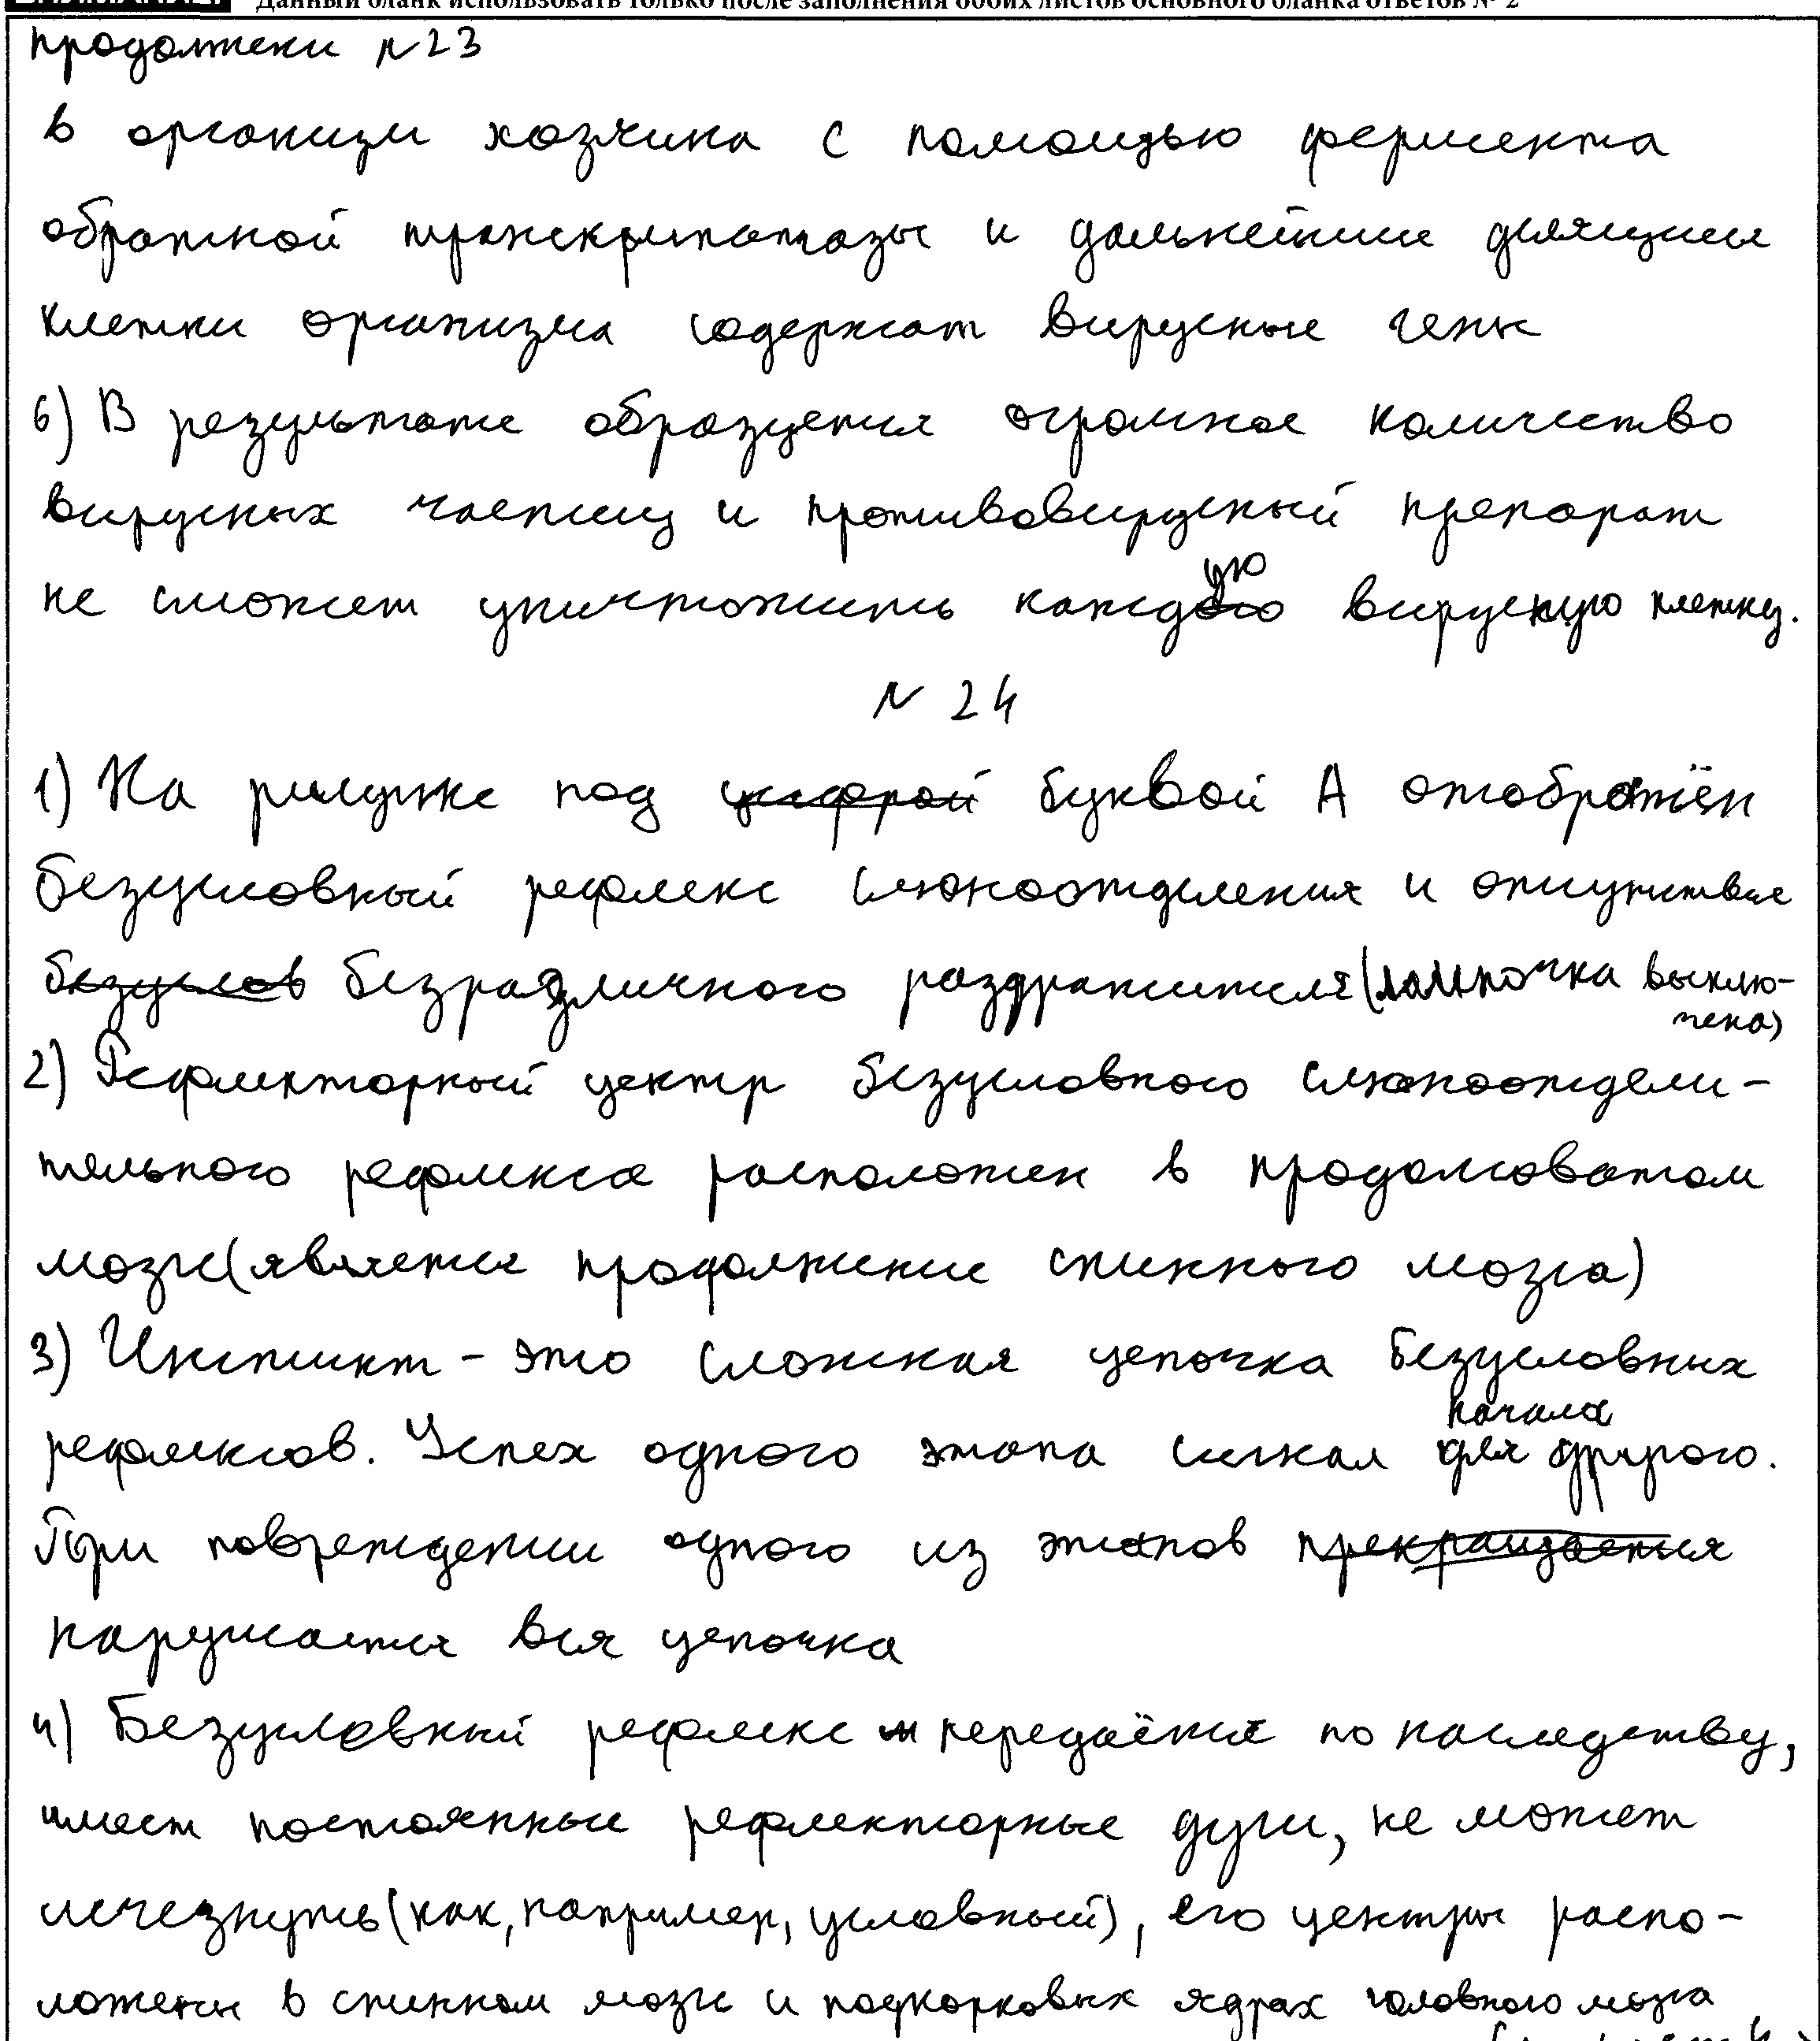 Данный бланк использовать только после заполнения обоих листов основного бланка ответов № 2
продолжени N 23
в организм хозяина с помощью фермента
обратной транскриптотазы и дальнейшие делящиеся
клетки организма содержат вирусные гены
6) В результате образуется огромное количество
вирусных частиц и противовирусный препарат
не сможет уничтожить каждую вирусную клетку.
N 24
1) На рисунке под цифрой буквой А отображён
безусловный рефлекс слюноотделения и отсутствие
безуслов безразличного раздражителя (лампочка выклю-
чена)
2) Рефлекторный центр безусловного слюноотдели-
тельного рефлекса расположен в продолговатом
мозге (является продолжение спинного мозга)
3) Инстинкт - это сложная цепочка безусловных
рефлексов. Успех одного этапа сигнал начала для другого.
При повреждении одного из этапов прекращается
нарушается вся цепочка
4) Безусловный рефлекс передаётся по наследству,
имеет постоянные рефлекторные дуги, не может
исчезнуть (как, например, условный), его центры распо-
ложены в спинном мозге и подкорковых ядрах головного мозга